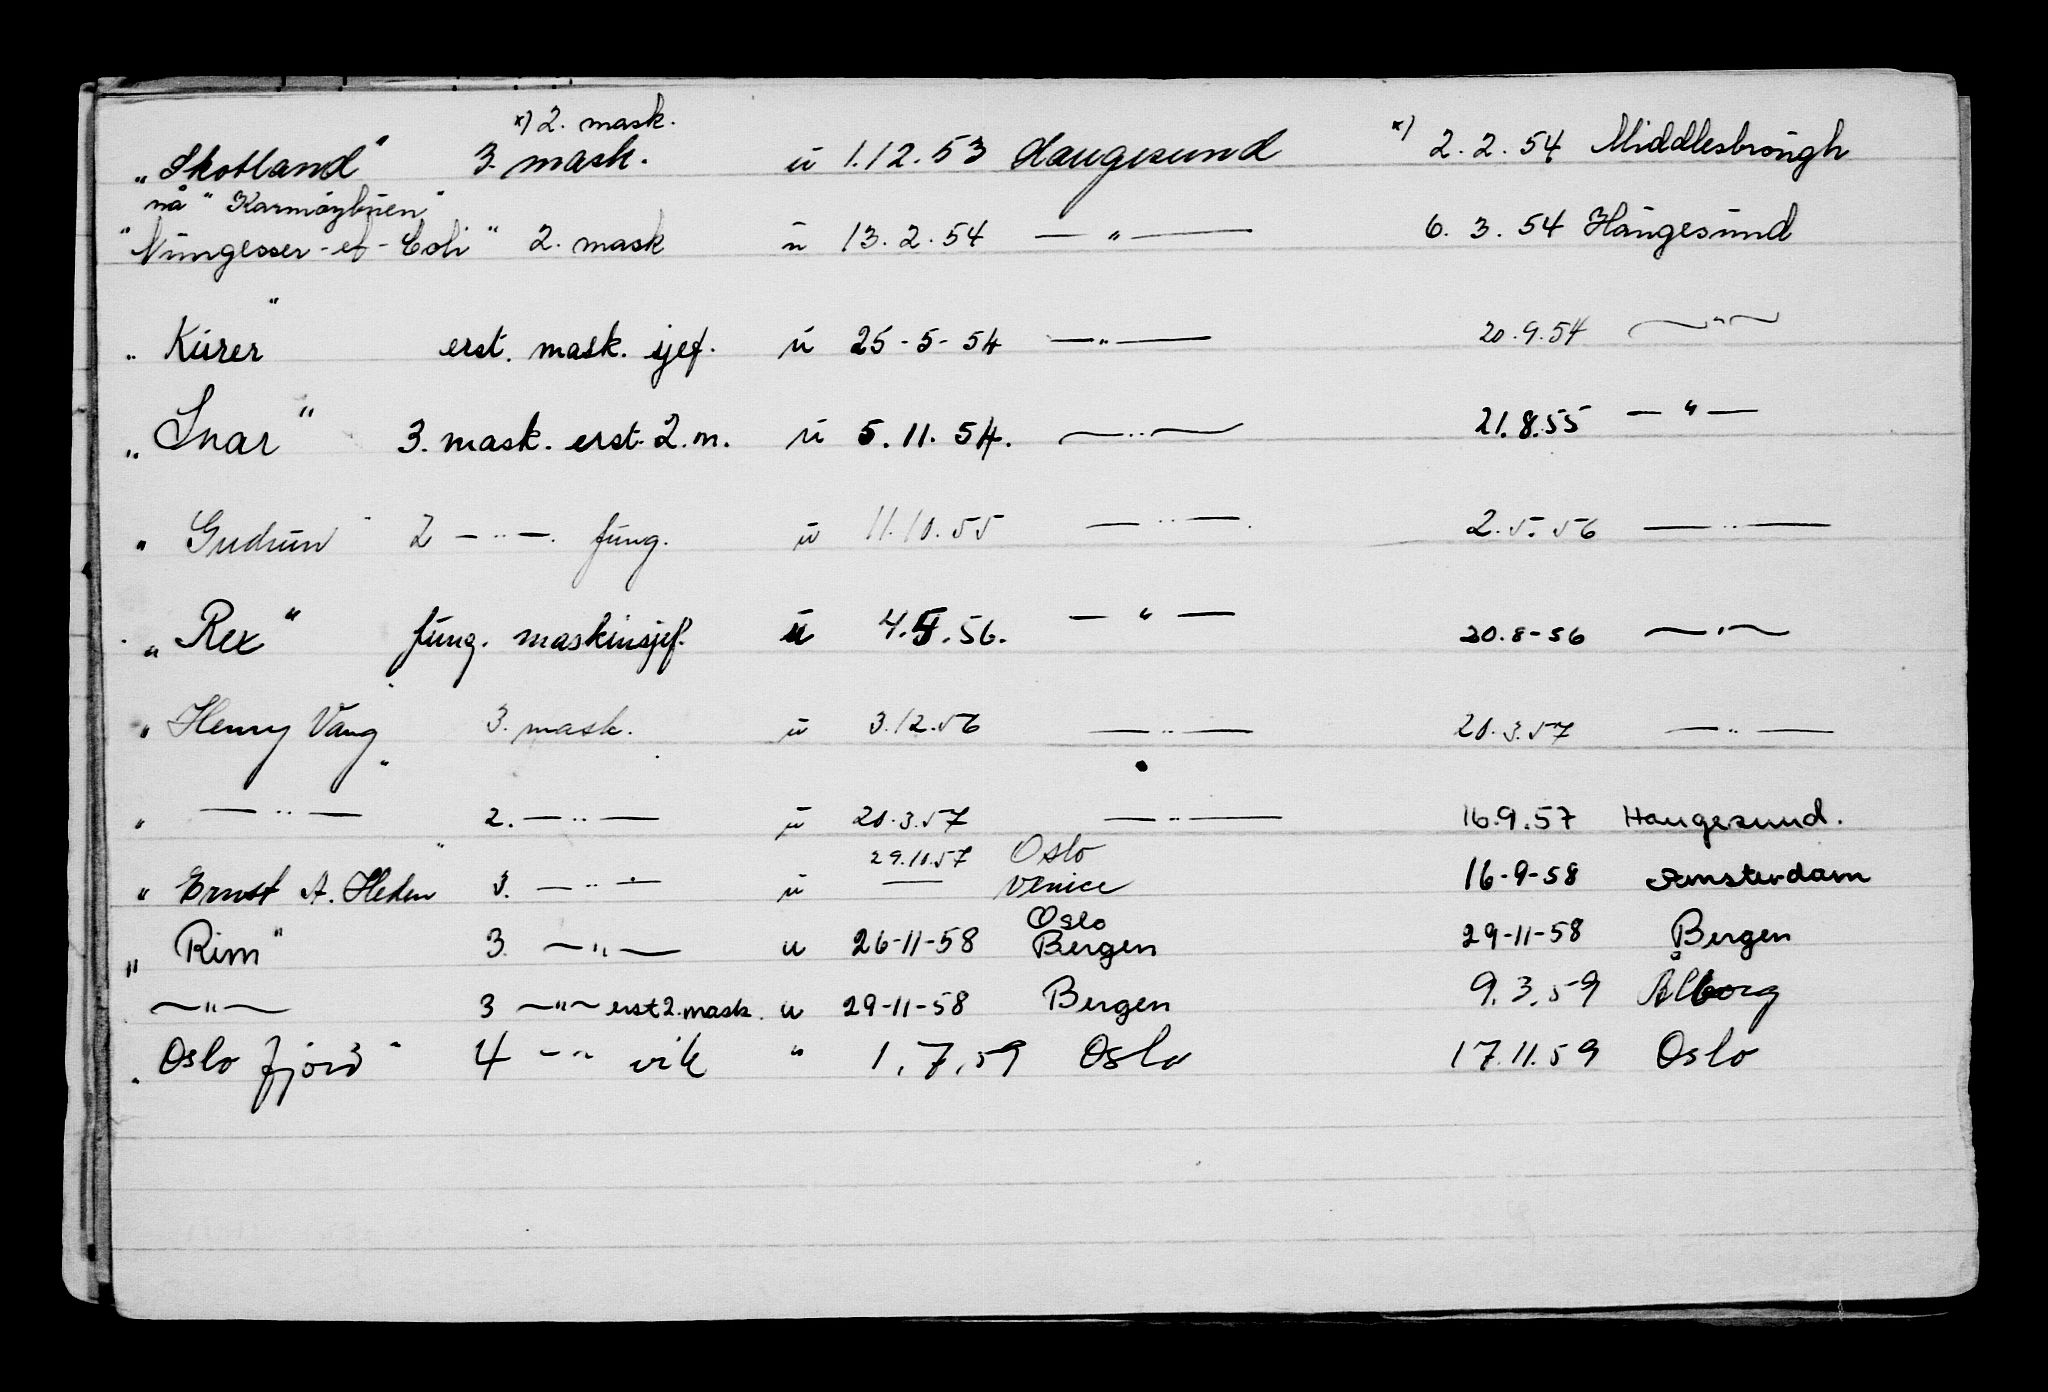 x) 2. mask.
„Skotland" 3. mask. u 1.12.53 Haugesund x) 2.2.54 Middlesbrough
nå "Karmøybuen"
"Nungesser-et-Coli" 2. mask u 13.2.54 — " — 6.3.54 Haugesund
„Kurer" erst. mask. sjef. u 25-5-54 — " — 20.9.54 — " —
„Snar" 3. mask. erst. 2.m. u 5.11.54. — " — 21.8.55 — " —
„Gudrun" 2 — " — . fung. u 11.10.55 — " — 2.5.56 — " —
„Rex" fung. maskinsjef. u 4.5.56. — " — 20.8-56 — " —
„Henry Vang" 3. mask. u 3.12.56 — " — 20.3.57 — " —
" — " — " 2. — " — u 20.3.57 — " — 16.9.57 Haugesund.
29.11.57 Oslo
"Ernst A. Heden" 3. — " — u — Venice 16-9-58 Amsterdam
Oslo
„Rim" 3. — " — u 26-11-58 Bergen 29-11-58 Bergen
— " — 3 — " — erst 2. mask. u 29-11-58 Bergen 9.3.59 Ålborg
„Oslofjord" 4 — " — vik " 1.7.59 Oslo 17.11.59 Oslo